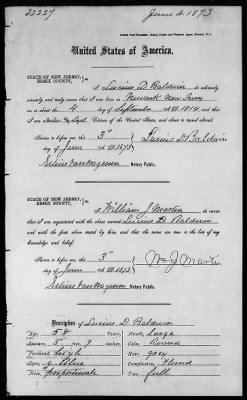 32227
June 4. 1873
United States of America.
STATE OF NEW JERSEY,
ESSEX COUNTY,
I Lucius D. Baldwin do solemnly
sincerely and truly swear that I was born in Newark New Jersey
on or about the 4 day of September
and Loyal Citizen of the United States, and about to travel abroad.
Sworn to before me, this 3rd
day of June A.D. 1873
Lucius D Baldwin
Notary Public.
STATE OF NEW JERSEY,
ESSEX COUNTY,
I William J. Martin do swear
that I am acquainted with the above named Lucius D. Baldwin
and with the facts above stated by him, and that the same are true to the best of my
knowledge and belief.
Sworn to before me, this 3rd
day of June A.D. 1873
Wm J Martin
Notary Public.
Description of Lucius D. Baldwin
Age
Mouth: Large
Stature: 5 9
Chin: Round
Forehead: high
Hair: grey
Eyes: Blue
Complexion: Blond
Nose: proportionate
Face: full